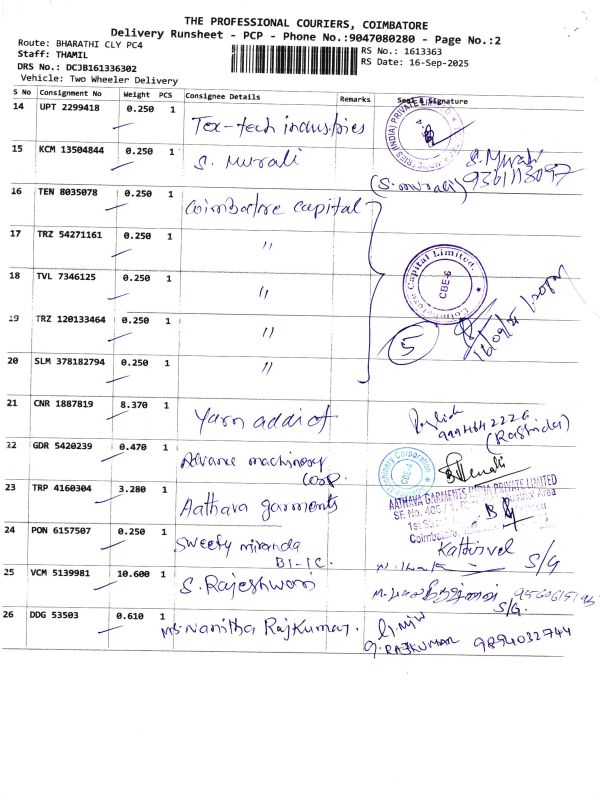 THE PROFESSIONAL COURIERS, COIMBATORE
Delivery Runsheet - PCP - Phone No.:9047080280 - Page No.:2
Route: BHARATHI CLY PC4
RS No.: 1613363
Staff: THAMIL
RS Date: 16-Sep-2025
DRS No.: DCJB161336302
Vehicle: Two Wheeler Delivery
S No Consignment No Weight PCS Consignee Details Remarks Seal & Signature
14 UPT 2299418 0.250 1 Tex-tech industries
15 KCM 13504844 0.250 1 S. Murali
S. Murali
(S.murali) 9361113097
16 TEN 8035078 0.250 1 Coimbatore capital
17 TRZ 54271161 0.250 1 "
Coimbatore Capital Limited.
CBE-6
18 TVL 7346125 0.250 1 "
19 TRZ 120133464 0.250 1 "
5
20 SLM 378182794 0.250 1 "
21 CNR 1887819 8.370 1 Yarn addict
(Rashida)
22 GDR 5420239 0.470 1 Advance machinery corp.
23 TRP 4160304 3.280 1 Aathava garments
AATHAVA GARMENTS INDIA PRIVATE LIMITED
24 PON 6157507 0.250 1 Sweety miranda
B1-1C.
Kathirvel S/G
25 VCM 5139981 10.600 1 S. Rajeshwari
S/G.
26 DDG 53503 0.610 1 Ms Nanitha Rajkumar.
G. RAJKUMAR 9894032744